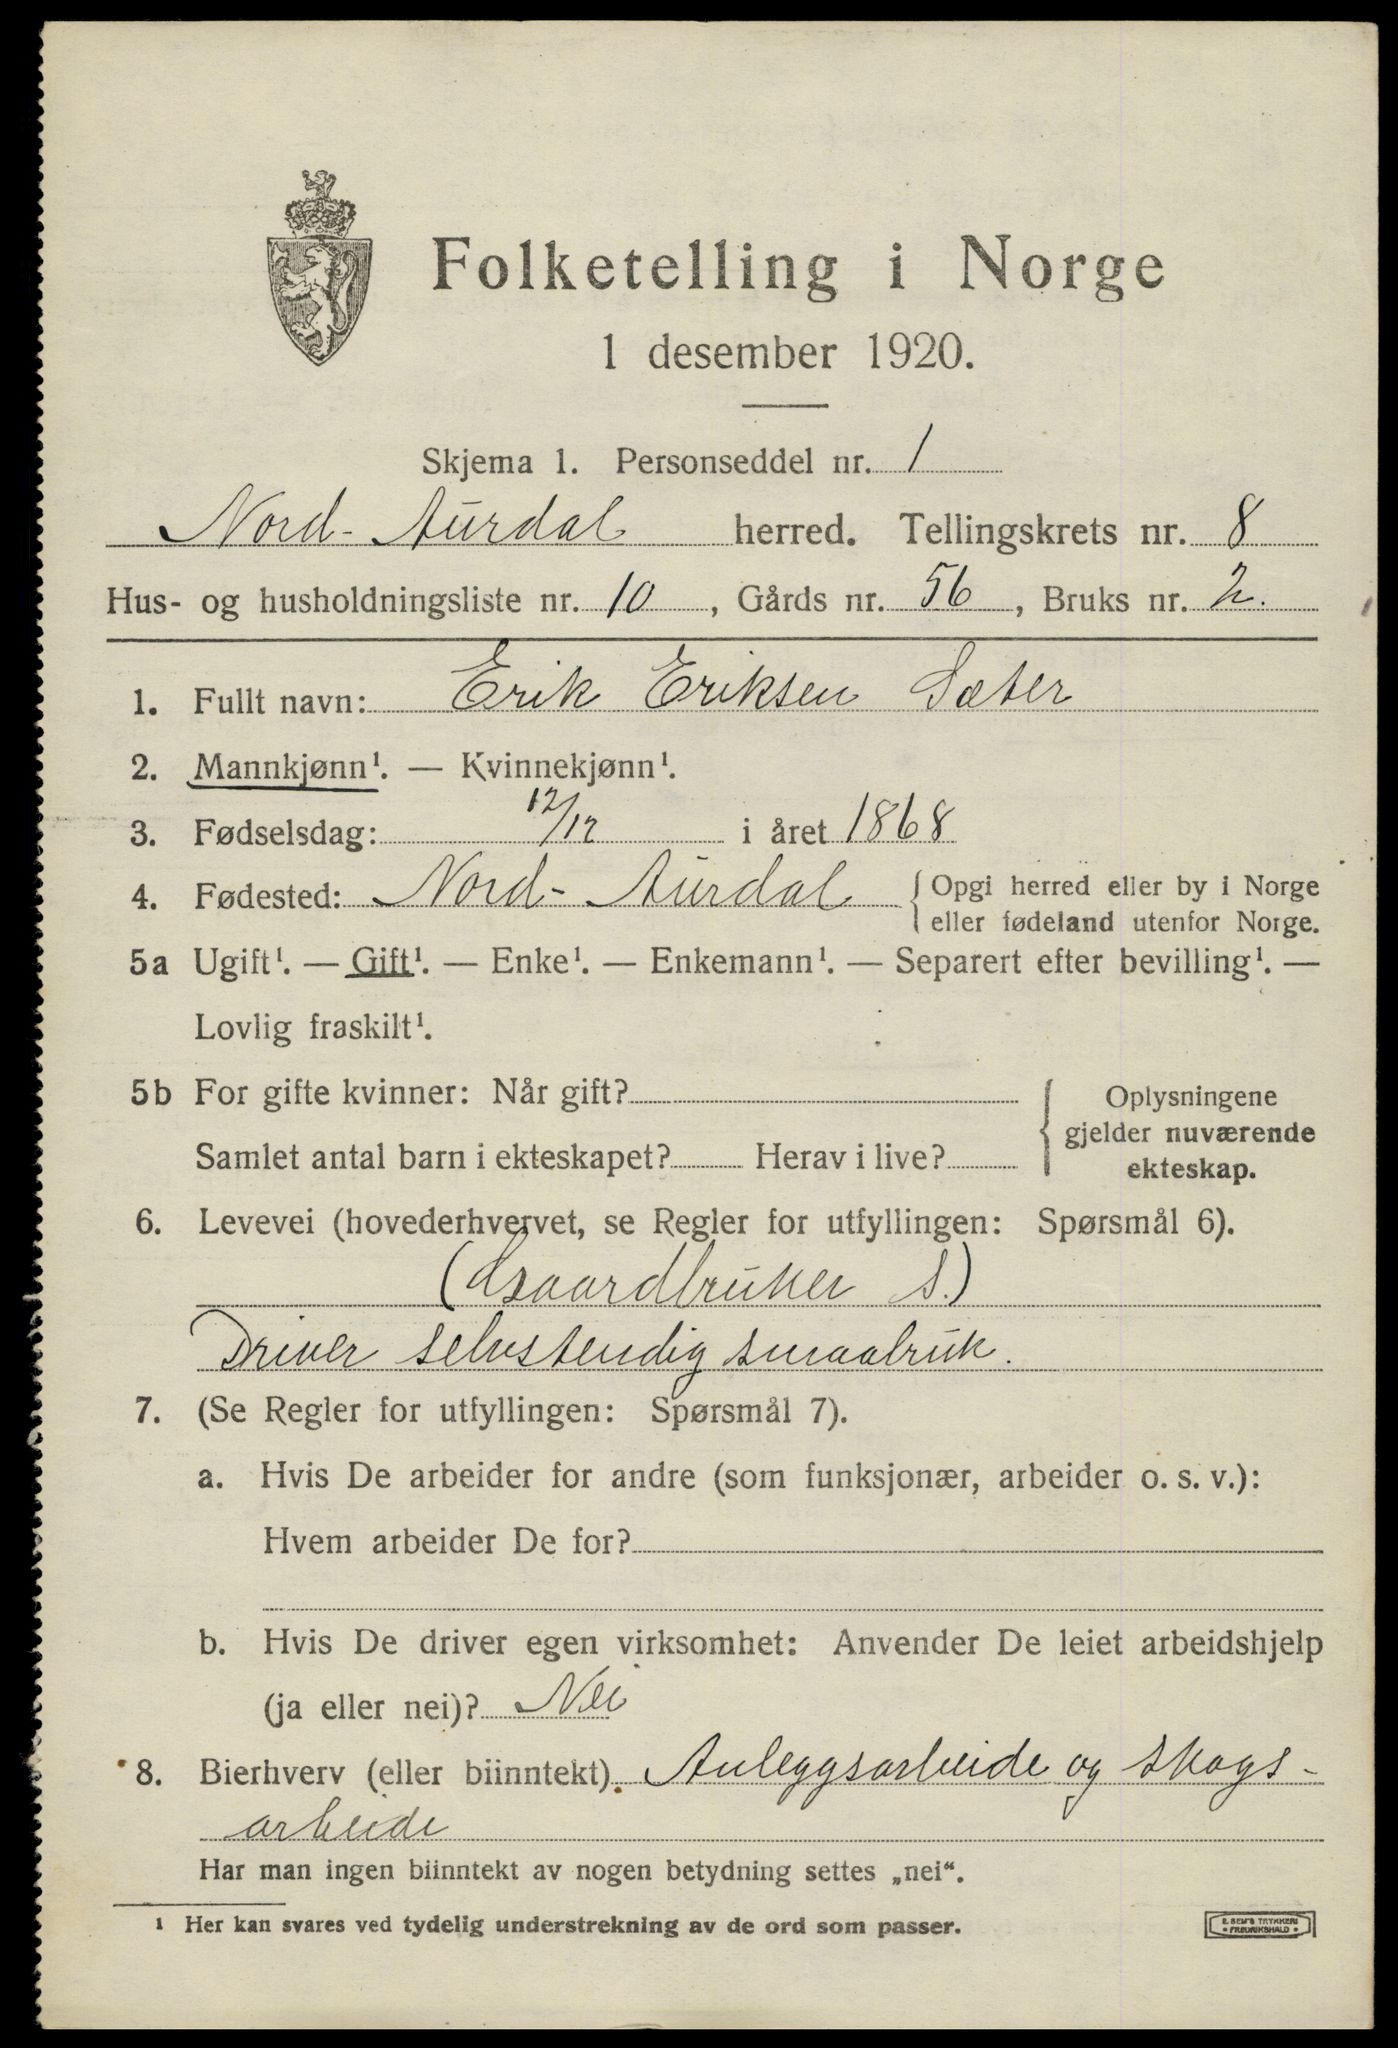 Folketelling i Norge
1 desember 1920.
Skjema 1. Personseddel nr. 1
Nord-Aurdal herred. Tellingskrets nr. 8
Hus- og husholdningsliste nr. 10, Gårds nr. 56, Bruks nr. 2.
1. Fullt navn: Erik Eriksen Sæter
2. Mannkjønn¹. — Kvinnekjønn¹.
3. Fødselsdag: 12/12 i året 1868
4. Fødested: Nord-Aurdal { Opgi herred eller by i Norge
eller fødeland utenfor Norge.
5a Ugift¹. — Gift¹. — Enke¹. — Enkemann¹. — Separert efter bevilling¹. —
Lovlig fraskilt¹.
5b For gifte kvinner: Når gift?
Samlet antal barn i ekteskapet? Herav i live?
Oplysningene
gjelder nuværende
ekteskap.
6. Levevei (hovederhvervet, se Regler for utfyllingen: Spørsmål 6).
(Gaardbruker S.)
Driver selvstendig smaabruk.
7. (Se Regler for utfyllingen: Spørsmål 7).
a. Hvis De arbeider for andre (som funksjonær, arbeider o. s. v.):
Hvem arbeider De for?
b. Hvis De driver egen virksomhet: Anvender De leiet arbeidshjelp
(ja eller nei)? Nei
8. Bierhverv (eller biinntekt). Anleggsarbeide og skogs-
arbeide
Har man ingen biinntekt av nogen betydning settes „nei“.
¹ Her kan svares ved tydelig understrekning av de ord som passer.
E. SEM'S TRYKKERI
• FREDRIKSHALD •